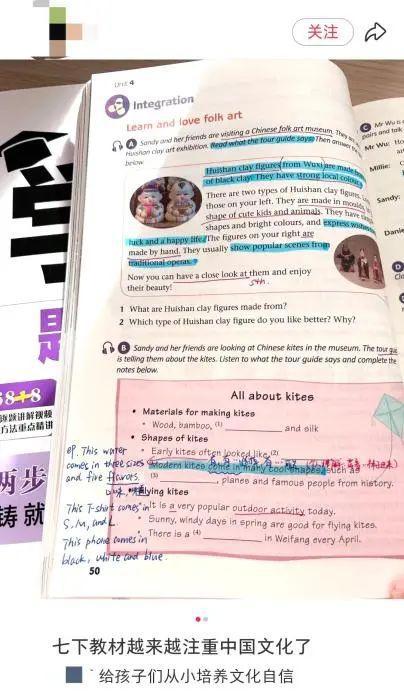 关注
Unit 4
Integration
Learn and love folk art
A Sandy and her friends are visiting a Chinese folk art museum. They
Huishan clay art exhibition. Read what the tour guide says. Then answer
below.
Huishan clay figures from Wuxi are made
of black clay. They have strong local colour
There are two types of Huishan clay figures.
those on your left. They are made in
shape of cute kids and animals. They have
shapes and bright colours, and express wishes
luck and a happy life. The figures on your right are
made by hand. They usually show popular scenes from
traditional operas.
Now you can have a close look at them and enjoy
their beauty!
sth.
1 What are Huishan clay figures made from?
2 Which type of Huishan clay figure do you like better? Why?
B Sandy and her friends are looking at Chinese kites in the museum. The tour
is telling them about the kites. Listen to what the tour guide says and complete the
notes below.
All about kites
• Materials for making kites
• Wood, bamboo, (1) and silk
• Shapes of kites
• Early kites often looked like (2)
• Modern kites come in many cool shapes, such as
(3) , planes and famous people from history.
Flying kites
• It is a very popular outdoor activity today.
• Sunny, windy days in spring are good for flying kites.
• There is a (4) in Weifang every April.
eg. This water
comes in three sizes
and five flavors.
This T-shirt comes in
S, M, and L
This phone comes in
black, white and blue.
50
C Mr Wu is
pairs and talk
Mr Wu:
Millie:
Sandy:
D
58+8
逐题讲解视频
方法重点精讲
两步
铸 就
七下教材越来越注重中国文化了
给孩子们从小培养文化自信